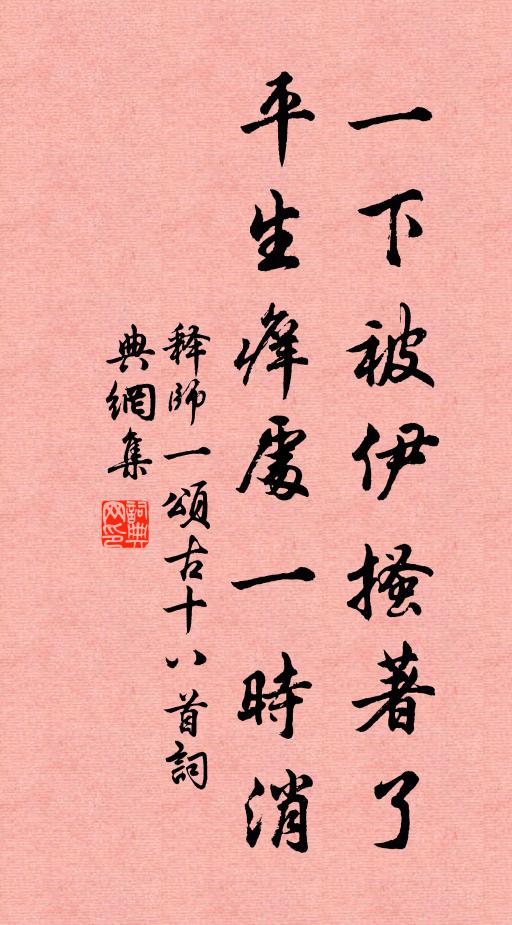 一下被伊搔著了
平生痒處一時消
释師一頌古十八首詞
典網集
詞典网印